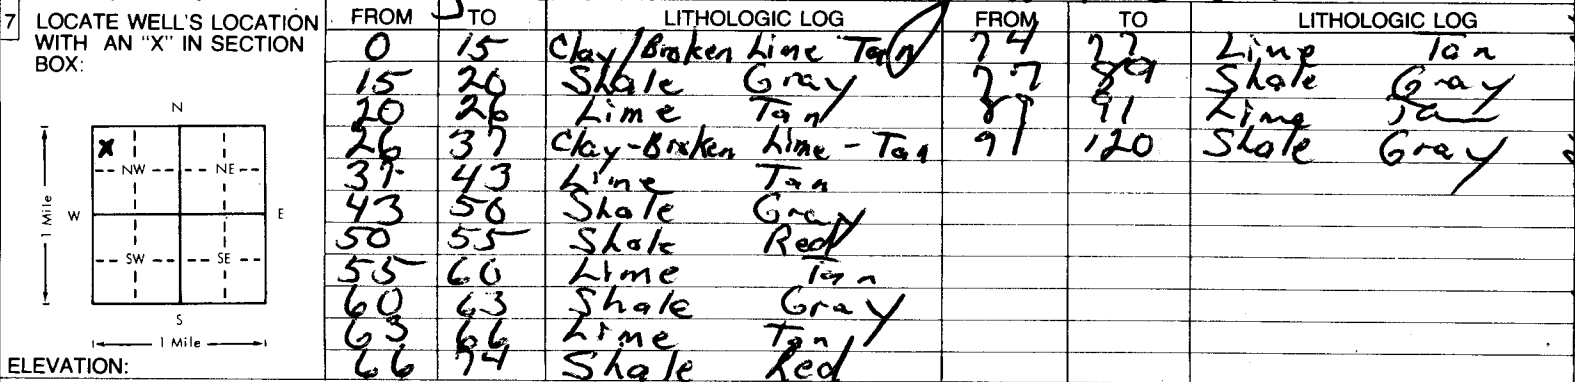 7 LOCATE WELL'S LOCATION WITH AN "X" IN SECTION BOX:
N
X
NW NE
W E
SW SE
S
1 Mile
1 Mile
ELEVATION:
FROM TO LITHOLOGIC LOG FROM TO LITHOLOGIC LOG
0 15 Clay/Broken Lime Tan 74 77 Lime Tan
15 20 Shale Gray 77 89 Shale Gray
20 26 Lime Tan 89 91 Lime Tan
26 37 Clay-Broken Lime - Tan 91 120 Shale Gray
37 43 Lime Tan
43 50 Shale Gray
50 55 Shale Red
55 60 Lime Tan
60 63 Shale Gray
63 66 Lime Tan
66 74 Shale Red